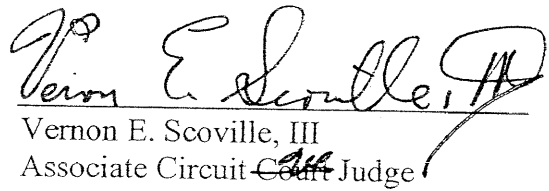 Vernon E. Scoville, III
Vernon E. Scoville, III
Associate Circuit Court Judge